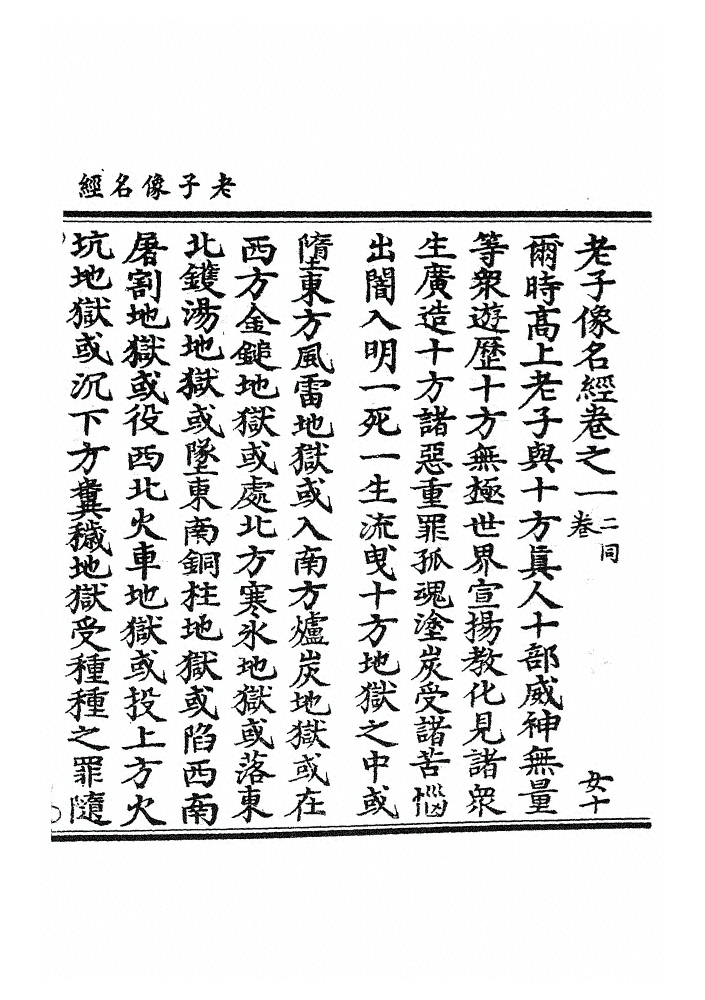 老子像名經
老子像名經卷之一 二同卷 女十
爾時高上老子與十方眞人十部威神無量
等衆遊歷十方無極世界宣揚教化見諸衆
生廣造十方諸惡重罪孤魂塗炭受諸苦惱
出闇入明一死一生流曳十方地獄之中或
墮東方風雷地獄或入南方爐炭地獄或在
西方金鎚地獄或處北方寒氷地獄或落東
北鑊湯地獄或墜東南銅柱地獄或陷西南
屠割地獄或役西北火車地獄或投上方火
坑地獄或沉下方糞穢地獄受種種之罪隨